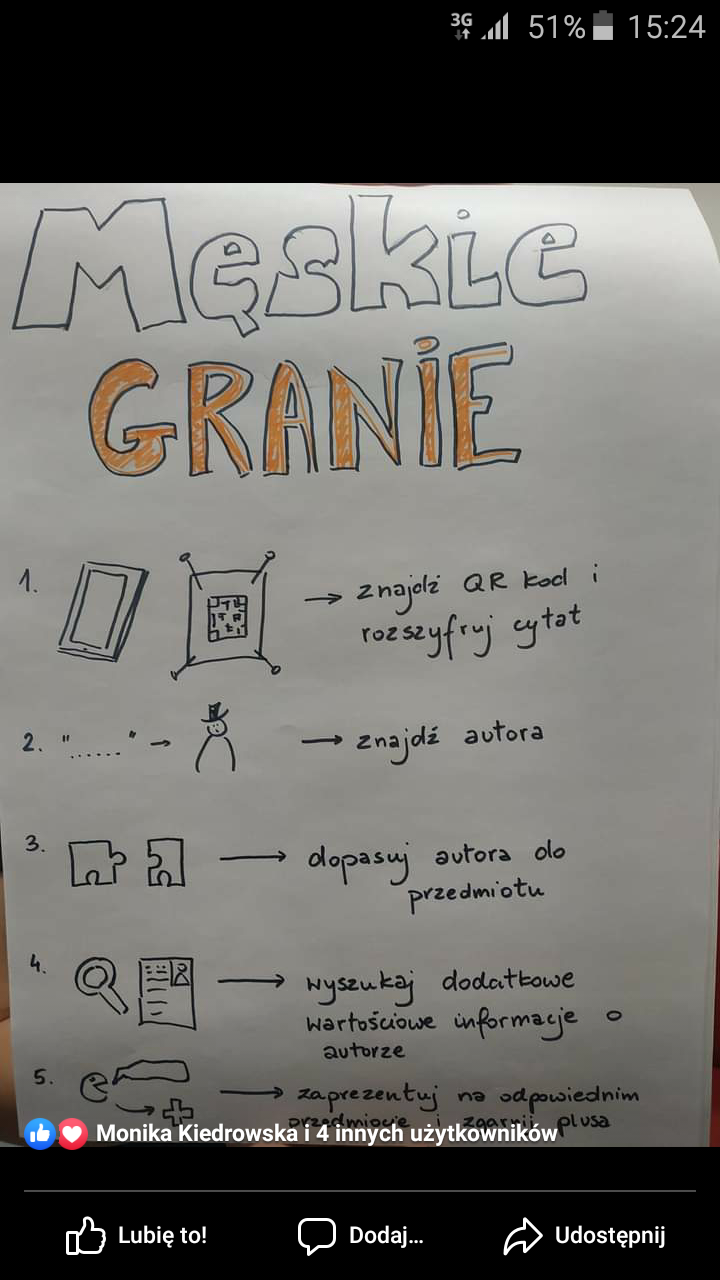 3G 51% 15:24
Męskie
GRANIE
1. → znajdź QR kod i
rozszyfruj cytat
2. "......" → → znajdź autora
3. → dopasuj autora do
przedmiotu
4. → wyszukaj dodatkowe
wartościowe informacje o
autorze
5. → zaprezentuj na odpowiednim
przedmiocie i zgarnij plusa
Monika Kiedrowska i 4 innych użytkowników
Lubię to! Dodaj... Udostępnij